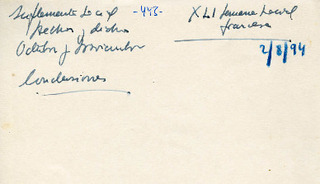 Suplemento Local -446-
Hechos y dichos
Octubre y Noviembre
Conclusiones
XLI Semana Social
francesa
2/8/94